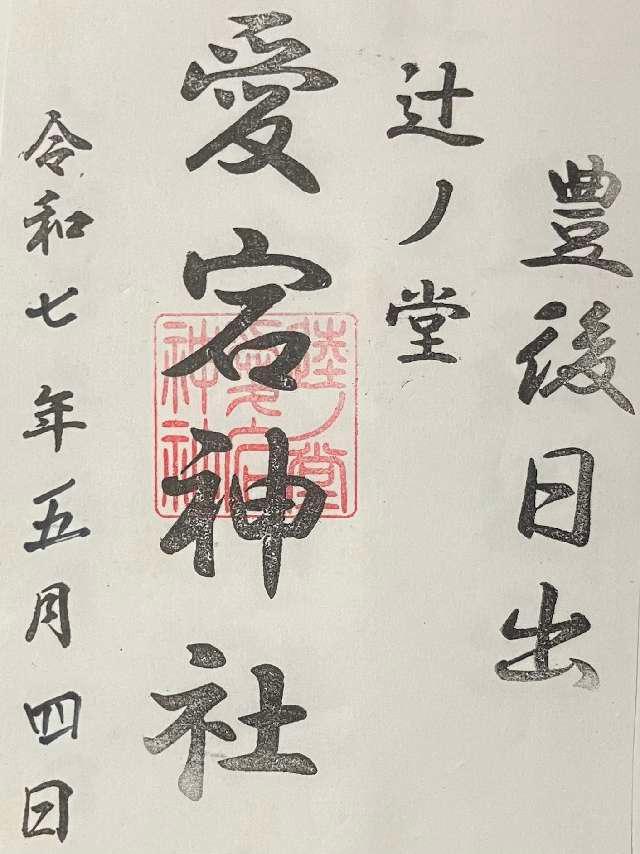 豊後日出
辻ノ堂
愛宕神社
令和七年五月四日
ノ堂
愛宕
神社